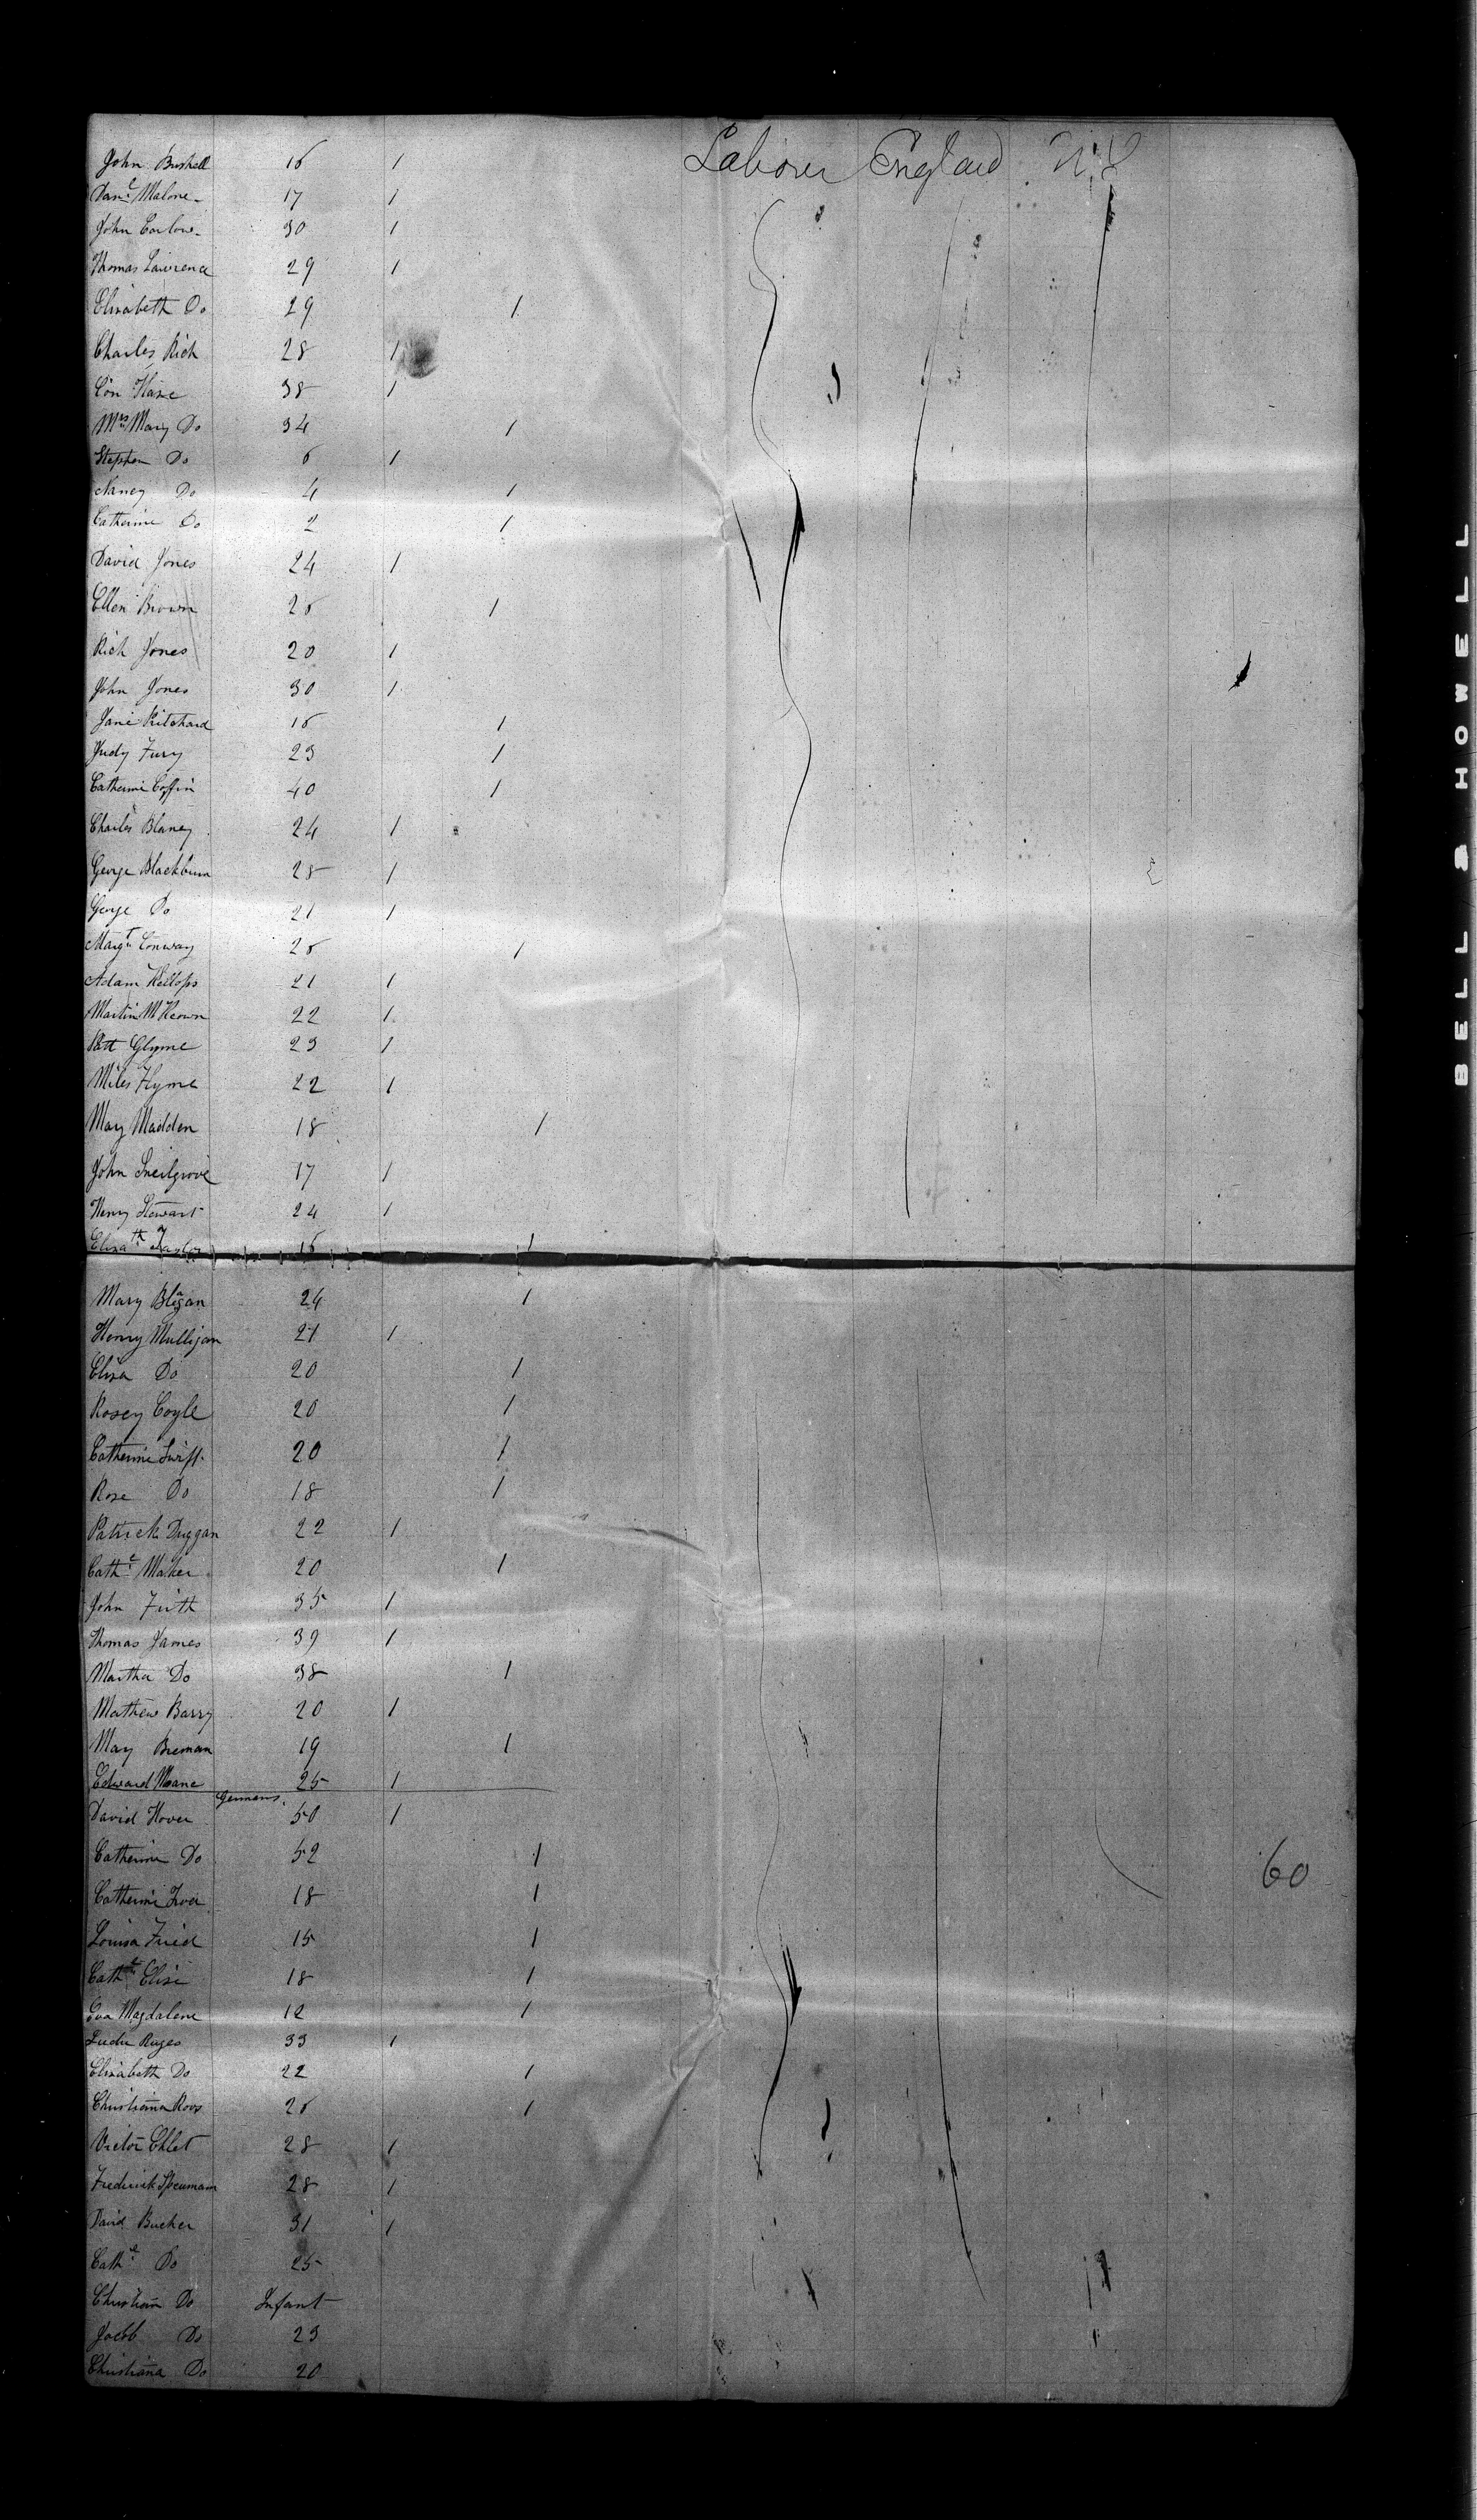 John Bushell 16 1 Labourer England N.Y
Danl Malone 17 1
John Carlow 30 1
Thomas Lawrence 29 1
Elizabeth Do 29 1
Charles Rich 28 1
Con Hare 38 1
Mrs Mary Do 34 1
Stephen Do 6 1
Nancy Do 4 1
Catherine Do 2 1
David Jones 24 1
Ellen Brown 26 1
Rich Jones 20 1
John Jones 30 1
Jane Ritchard 16 1
Judy Fury 23 1
Catherine Coffin 40 1
Charles Blaney 24 1
George Blackburn 28 1
George Do 21 1
Margt Conway 26 1
Adam 21 1
Martin McKeown 22 1
Patt Glynne 23 1
Miles Flynne 22 1
Mary Madden 18 1
John Sneilgrove 17 1
Henry Stewart 24 1
Elizath Taylor 16 1
Mary 24 1
Henry Mulligan 21 1
Eliza Do 20 1
Rosey Coyle 20 1
Catherine Swift 20 1
Rose Do 18 1
Patrick Duggan 22 1
Cathe Maher 20 1
John Firth 35 1
Thomas James 39 1
Martha Do 38 1
Mathew Barry 20 1
Mary Brenan 19 1
Edward Meane 25 1
Germans.
David Hover 50 1
Catherine Do 52 1 60
Catherine 18 1
Louisa Fried 15 1
Cathe Elise 18 1
Eva Magdalene 12 1
Ruges 33 1
Elizabeth Do 22 1
Christiana Roos 26 1
Victor Ehlet 28 1
Frederick 28 1
David Bucher 31 1
Cathe Do 25
Christian Do Infant
Jacob Do 23
Christiana Do 20
BELL & HOWELL